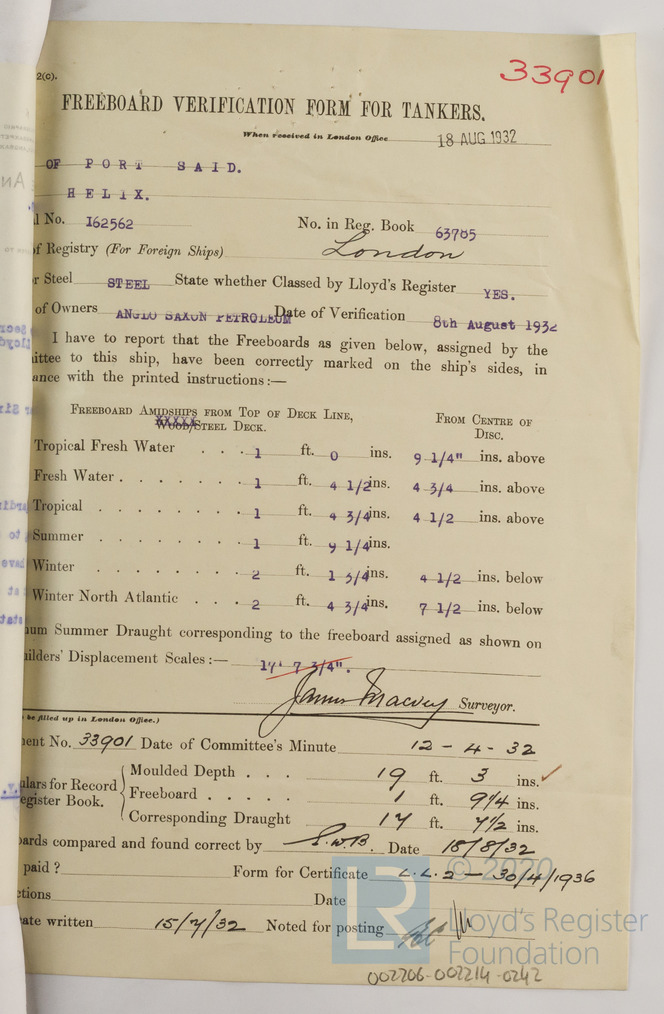 2(c).
33901
FREEBOARD VERIFICATION FORM FOR TANKERS.
When received in London Office 18 AUG 1932
OF PORT SAID.
HELIX.
l No. 162562 No. in Reg. Book 63705
of Registry (For Foreign Ships) London
r Steel STEEL State whether Classed by Lloyd's Register YES.
of Owners ANGLO SAXON PETROLEUM Date of Verification 8th August 1932
I have to report that the Freeboards as given below, assigned by the
ittee to this ship, have been correctly marked on the ship's sides, in
ance with the printed instructions:—
FREEBOARD AMIDSHIPS FROM TOP OF DECK LINE, FROM CENTRE OF
WOOD/STEEL DECK. DISC.
Tropical Fresh Water . . . 1 ft. 0 ins. 9 1/4" ins. above
Fresh Water . . . . . . . 1 ft. 4 1/2 ins. 4 3/4 ins. above
Tropical . . . . . . . . 1 ft. 4 3/4 ins. 4 1/2 ins. above
Summer . . . . . . . . 1 ft. 9 1/4 ins.
Winter . . . . . . . . 2 ft. 1 3/4 ins. 4 1/2 ins. below
Winter North Atlantic . . . 2 ft. 4 3/4 ins. 7 1/2 ins. below
um Summer Draught corresponding to the freeboard assigned as shown on
ilders' Displacement Scales:— 17' 7 3/4".
James Macvey Surveyor.
be filled up in London Office.)
ent No. 33901 Date of Committee's Minute 12-4-32
lars for Record Moulded Depth . . . 19 ft. 3 ins.
egister Book. Freeboard . . . . . 1 ft. 9 1/4 ins.
Corresponding Draught 17 ft. 7 1/2 ins.
ards compared and found correct by S.W.B. Date 18/8/32
paid? Form for Certificate L.L.2 — 30/4/1936
ctions Date
ate written 15/7/32 Noted for posting
LR © 2020
Lloyd's Register
Foundation
002206-002214-0242